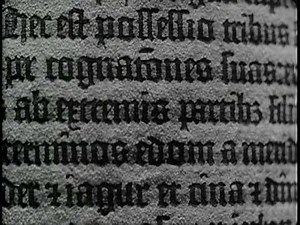 Hec est possessio tribus
p̲er cognatōnes suas. e
ab extremis partibꝫ filii
terminos edom a meri
der ⁊ iagur et cina ⁊ dim